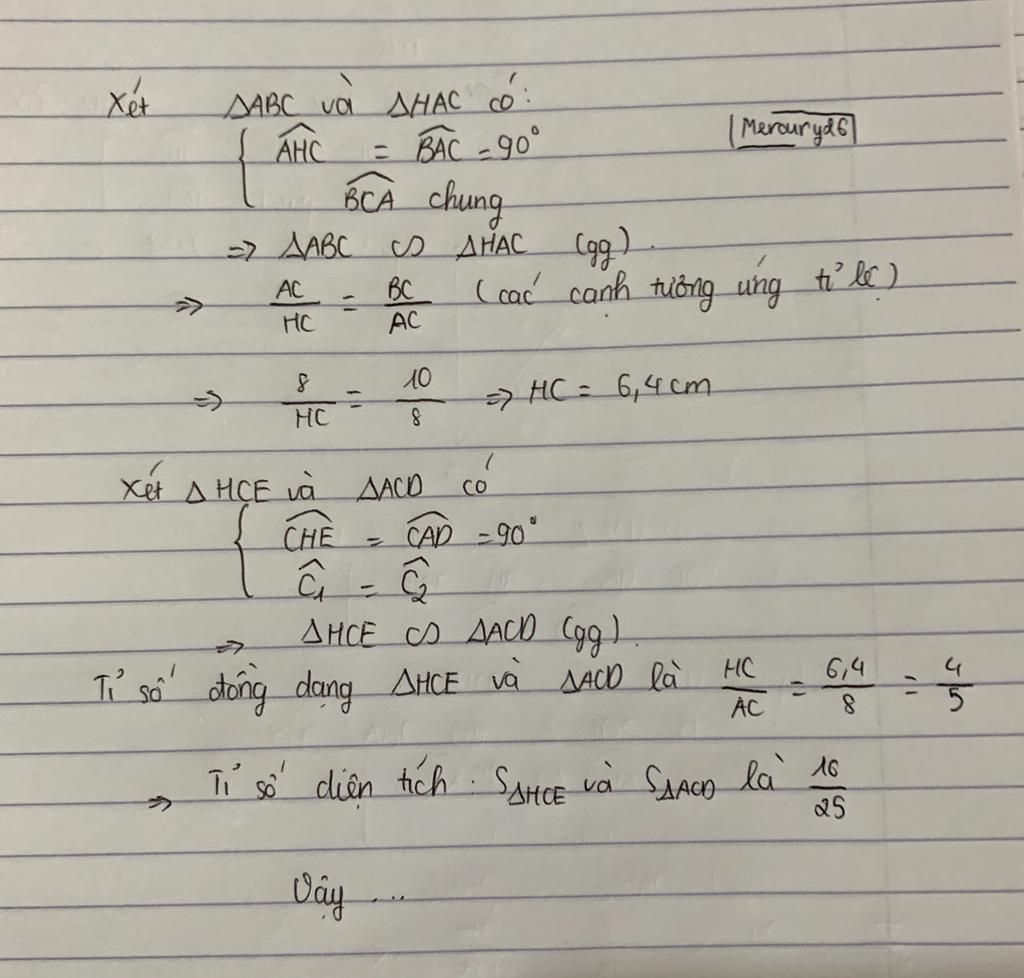 Xét ΔABC và ΔHAC có:
Mercury26
{ AHC^ = BAC^ = 90°
BCA^ chung
=> ΔABC ∽ ΔHAC (gg).
=> AC/HC = BC/AC (các cạnh tương ứng tỉ lệ)
=> 8/HC = 10/8 => HC = 6,4 cm
Xét ΔHCE và ΔACD có
{ CHE^ = CAD^ = 90°
C₁^ = C₂^
=> ΔHCE ∽ ΔACD (gg).
Tỉ số đồng dạng ΔHCE và ΔACD là HC/AC = 6,4/8 = 4/5
=> Tỉ số diện tích : SΔHCE và SΔACD là 16/25
Vậy ...